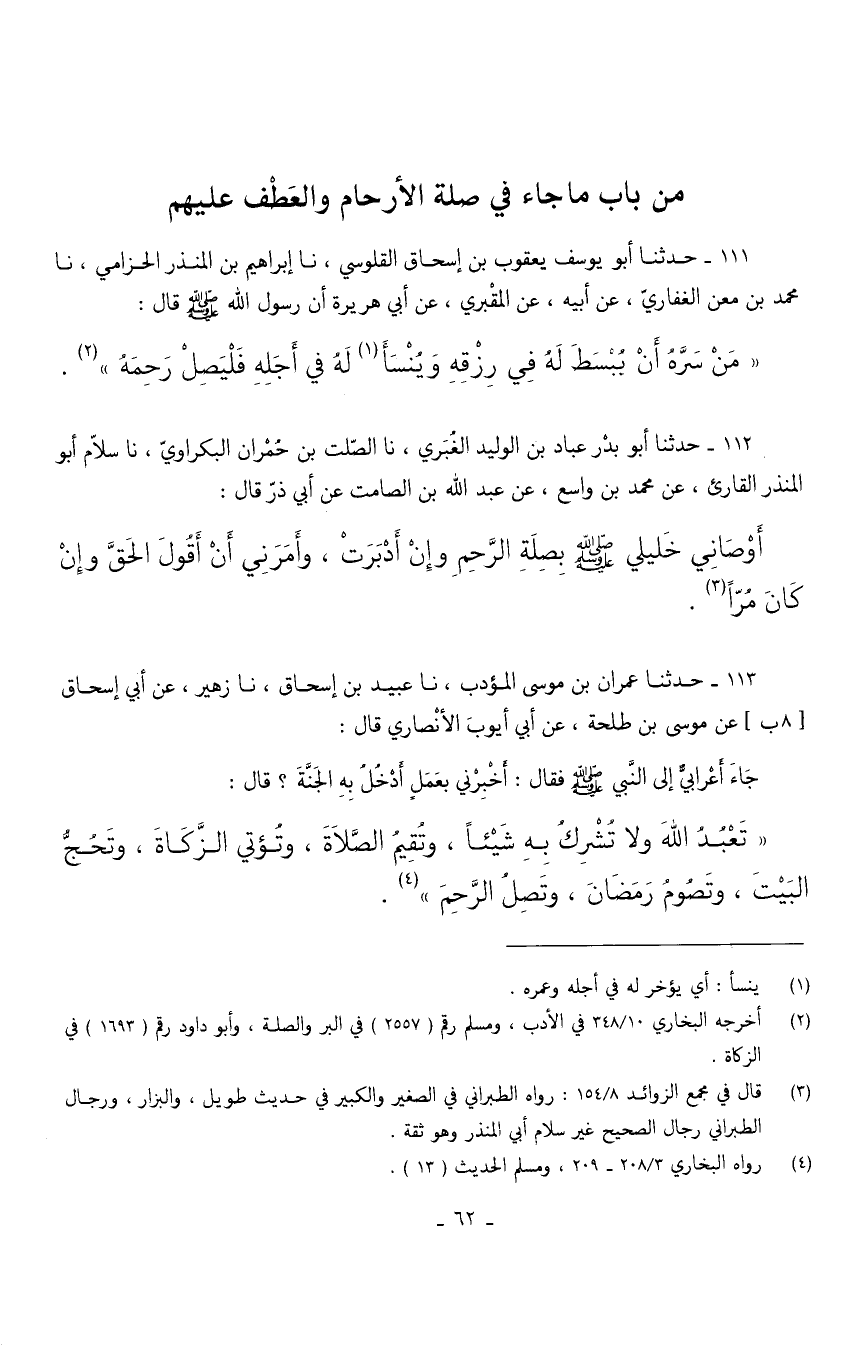 من باب ما جاء في صلة الأرحام والعَطْف عليهم
١١١ ـ حدثنا أبو يوسف يعقوب بن إسحاق القلوسي ، نا إبراهيم بن المنذر الحزامي ، نا
محمد بن معن الغفاريّ ، عن أبيه ، عن المقْبري ، عن أبي هريرة أن رسول الله ﷺ قال :
« مَنْ سَرَّهُ أَنْ يُبْسَطَ لَهُ فِي رِزْقِهِ وَيُنْسَأَ(١) لَهُ في أَجَلِهِ فَلْيَصِلْ رَحِمَهُ »(٢) .
١١٢ ـ حدثنا أبو بدْر عباد بن الوليد الغُبَري ، نا الصّلت بن حُمْران البكراويّ ، نا سلاّم أبو
المنذر القارئ ، عن محمد بن واسع ، عن عبد الله بن الصامت عن أبي ذرّ قال :
أَوْصَانِي خَليلي ﷺ بِصِلَةِ الرَّحِمِ وإِنْ أَدْبَرَتْ ، وأَمَرَني أَنْ أَقُولَ الحَقَّ وإِنْ
كَانَ مُرّاً(٣) .
١١٣ ـ حدثنا عمران بن موسى المؤدب ، نا عبيد بن إسحاق ، نا زهير ، عن أبي إسحاق
[ ٨ب ] عن موسى بن طلحة ، عن أبي أيوبَ الأنْصاري قال :
جَاءَ أَعْرابيٌّ إلى النَّبي ﷺ فقال : أَخْبِرْني بعَمَلٍ أَدْخُلُ بِهِ الجَنَّةَ ؟ قال :
« تَعْبُدُ اللهَ ولا تُشْرِكُ بِهِ شَيْئاً ، وتُقِيمُ الصَّلاَةَ ، وتُؤتي الزَّكَاةَ ، وتَحُجُّ
البَيْتَ ، وتَصُومُ رَمَضَانَ ، وتَصِلُ الرَّحِمَ »(٤) .
(١) ينسأ : أي يؤخر له في أجله وعمره .
(٢) أخرجه البخاري ٣٤٨/١٠ في الأدب ، ومسلم رقم ( ٢٥٥٧ ) في البر والصلة ، وأبو داود رقم ( ١٦٩٣ ) في
الزكاة .
(٣) قال في مجمع الزوائد ١٥٤/٨ : رواه الطبراني في الصغير والكبير في حديث طويل ، والبزار ، ورجال
الطبراني رجال الصحيح غير سلام أبي المنذر وهو ثقة .
(٤) رواه البخاري ٢٠٨/٣ ـ ٢٠٩ ، ومسلم الحديث ( ١٣ ) .
ـ ٦٢ ـ